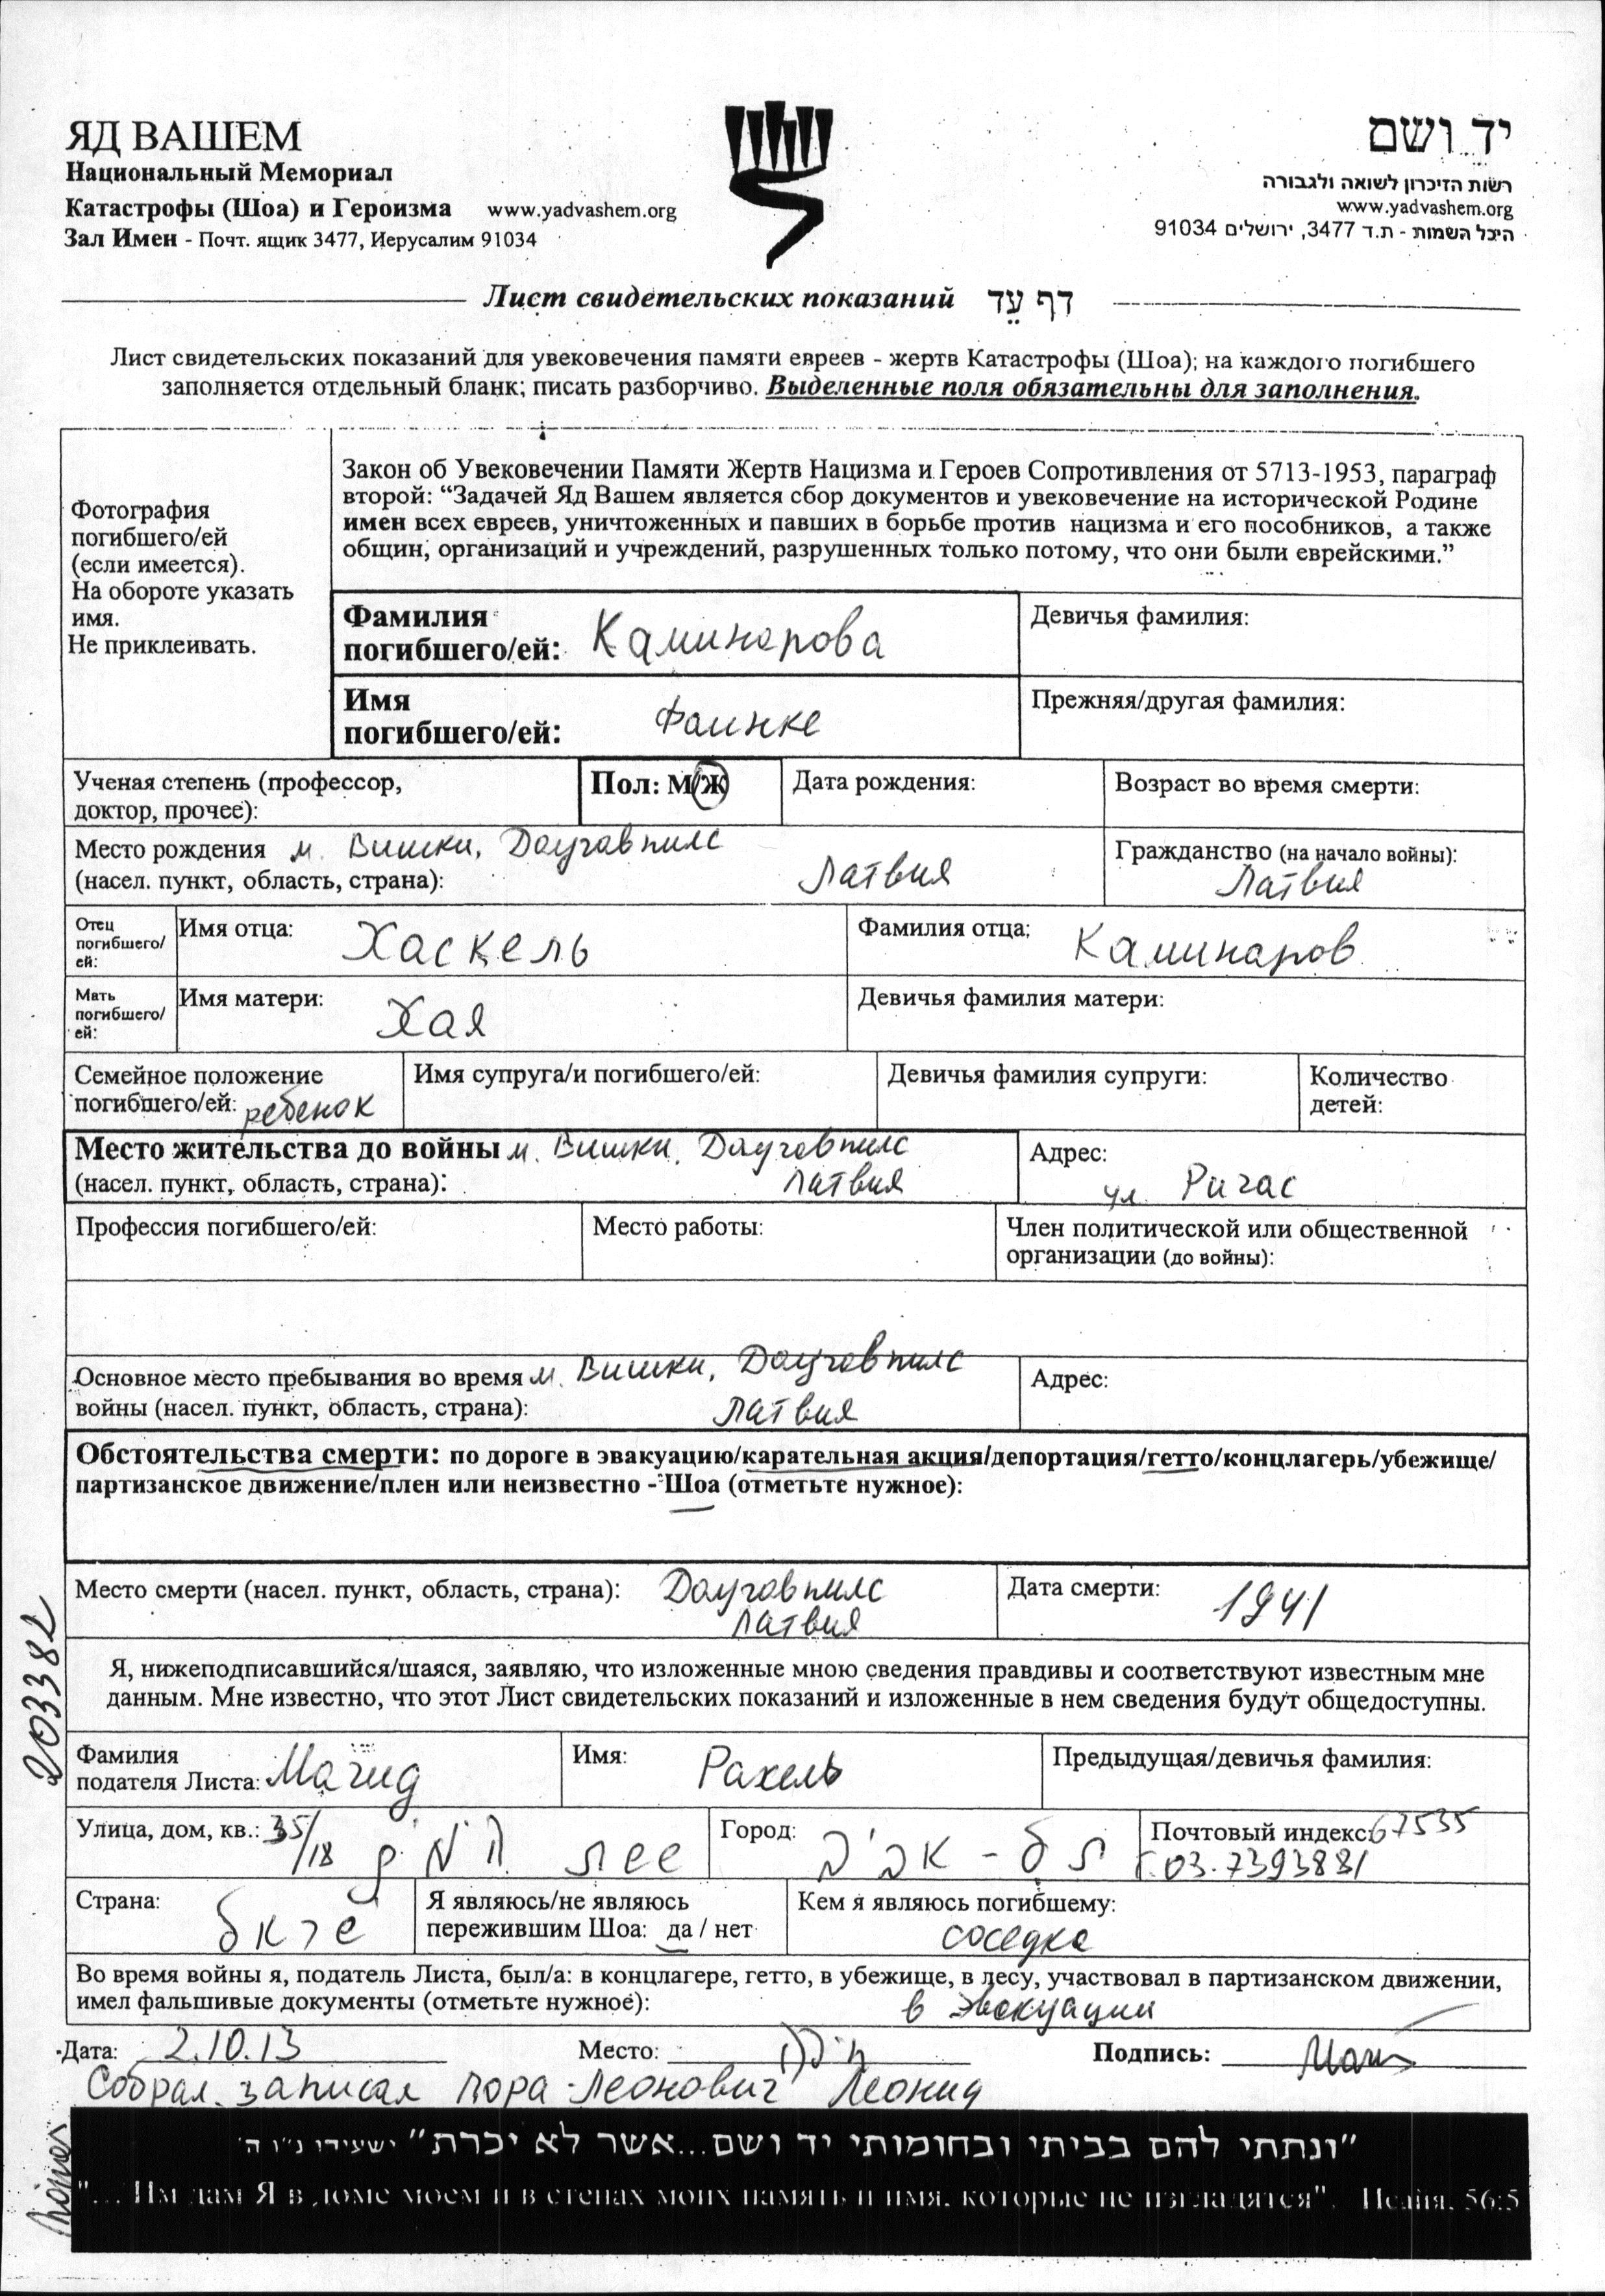 ЯД ВАШЕМ
Национальный Мемориал
Катастрофы (Шоа) и Героизма www.yadvashem.org
Зал Имен - Почт. ящик 3477, Иерусалим 91034
יד ושם
רשות הזיכרון לשואה ולגבורה
www.yadvashem.org
היכל השמות - ת.ד 3477, ירושלים 91034
Лист свидетельских показаний דף עֵד
Лист свидетельских показаний для увековечения памяти евреев - жертв Катастрофы (Шоа); на каждого погибшего
заполняется отдельный бланк; писать разборчиво. Выделенные поля обязательны для заполнения.
Фотография
погибшего/ей
(если имеется).
На обороте указать
имя.
Не приклеивать.
Закон об Увековечении Памяти Жертв Нацизма и Героев Сопротивления от 5713-1953, параграф
второй: “Задачей Яд Вашем является сбор документов и увековечение на исторической Родине
имен всех евреев, уничтоженных и павших в борьбе против нацизма и его пособников, а также
общин, организаций и учреждений, разрушенных только потому, что они были еврейскими.”
Фамилия
погибшего/ей: Каминарова
Девичья фамилия:
Имя
погибшего/ей: Фаинке
Прежняя/другая фамилия:
Ученая степень (профессор,
доктор, прочее):
Пол: М/Ж
Дата рождения:
Возраст во время смерти:
Место рождения м. Вишки, Даугавпилс
(насел. пункт, область, страна): Латвия
Гражданство (на начало войны):
Латвия
Отец
погибшего/
ей:
Имя отца: Хаскель
Фамилия отца: Каминаров
Мать
погибшего/
ей:
Имя матери: Хая
Девичья фамилия матери:
Семейное положение
погибшего/ей: ребенок
Имя супруга/и погибшего/ей:
Девичья фамилия супруги:
Количество
детей:
Место жительства до войны м. Вишки, Даугавпилс
(насел. пункт, область, страна): Латвия
Адрес:
ул. Ригас
Профессия погибшего/ей:
Место работы:
Член политической или общественной
организации (до войны):
Основное место пребывания во время м. Вишки, Даугавпилс
войны (насел. пункт, область, страна): Латвия
Адрес:
Обстоятельства смерти: по дороге в эвакуацию/карательная акция/депортация/гетто/концлагерь/убежище/
партизанское движение/плен или неизвестно - Шоа (отметьте нужное):
Место смерти (насел. пункт, область, страна): Даугавпилс
Латвия
Дата смерти: 1941
203382
Я, нижеподписавшийся/шаяся, заявляю, что изложенные мною сведения правдивы и соответствуют известным мне
данным. Мне известно, что этот Лист свидетельских показаний и изложенные в нем сведения будут общедоступны.
Фамилия
подателя Листа: Магид
Имя: Рахель
Предыдущая/девичья фамилия:
Улица, дом, кв.: 35/18
Город: תל-אביב
Почтовый индекс: 67535
т. 03.7393881
Страна:
Я являюсь/не являюсь
пережившим Шоа: да / нет
Кем я являюсь погибшему:
соседка
Во время войны я, податель Листа, был/а: в концлагере, гетто, в убежище, в лесу, участвовал в партизанском движении,
имел фальшивые документы (отметьте нужное): в эвакуации
Дата: 2.10.13 Место: חולון Подпись:
Собрал, записал Пора-Леонович Леонид
"ונתתי להם בביתי ובחומותי יד ושם...אשר לא יכרת" ישעיהו נ"ו ה'
"...Им дам Я в доме моем и в стенах моих память и имя, которые не изгладятся". Исайя, 56:5